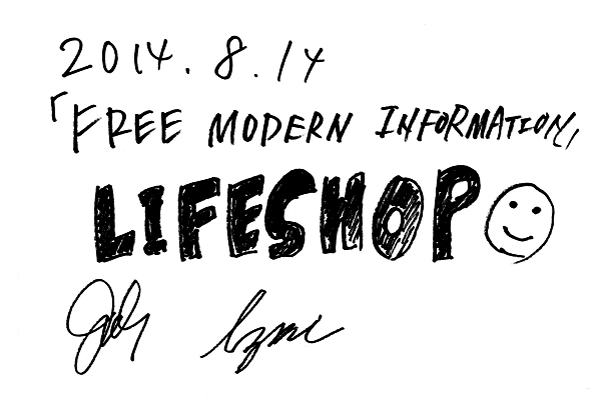 2014.8.14
「FREE MODERN INFORMATION」
LIFESHOP